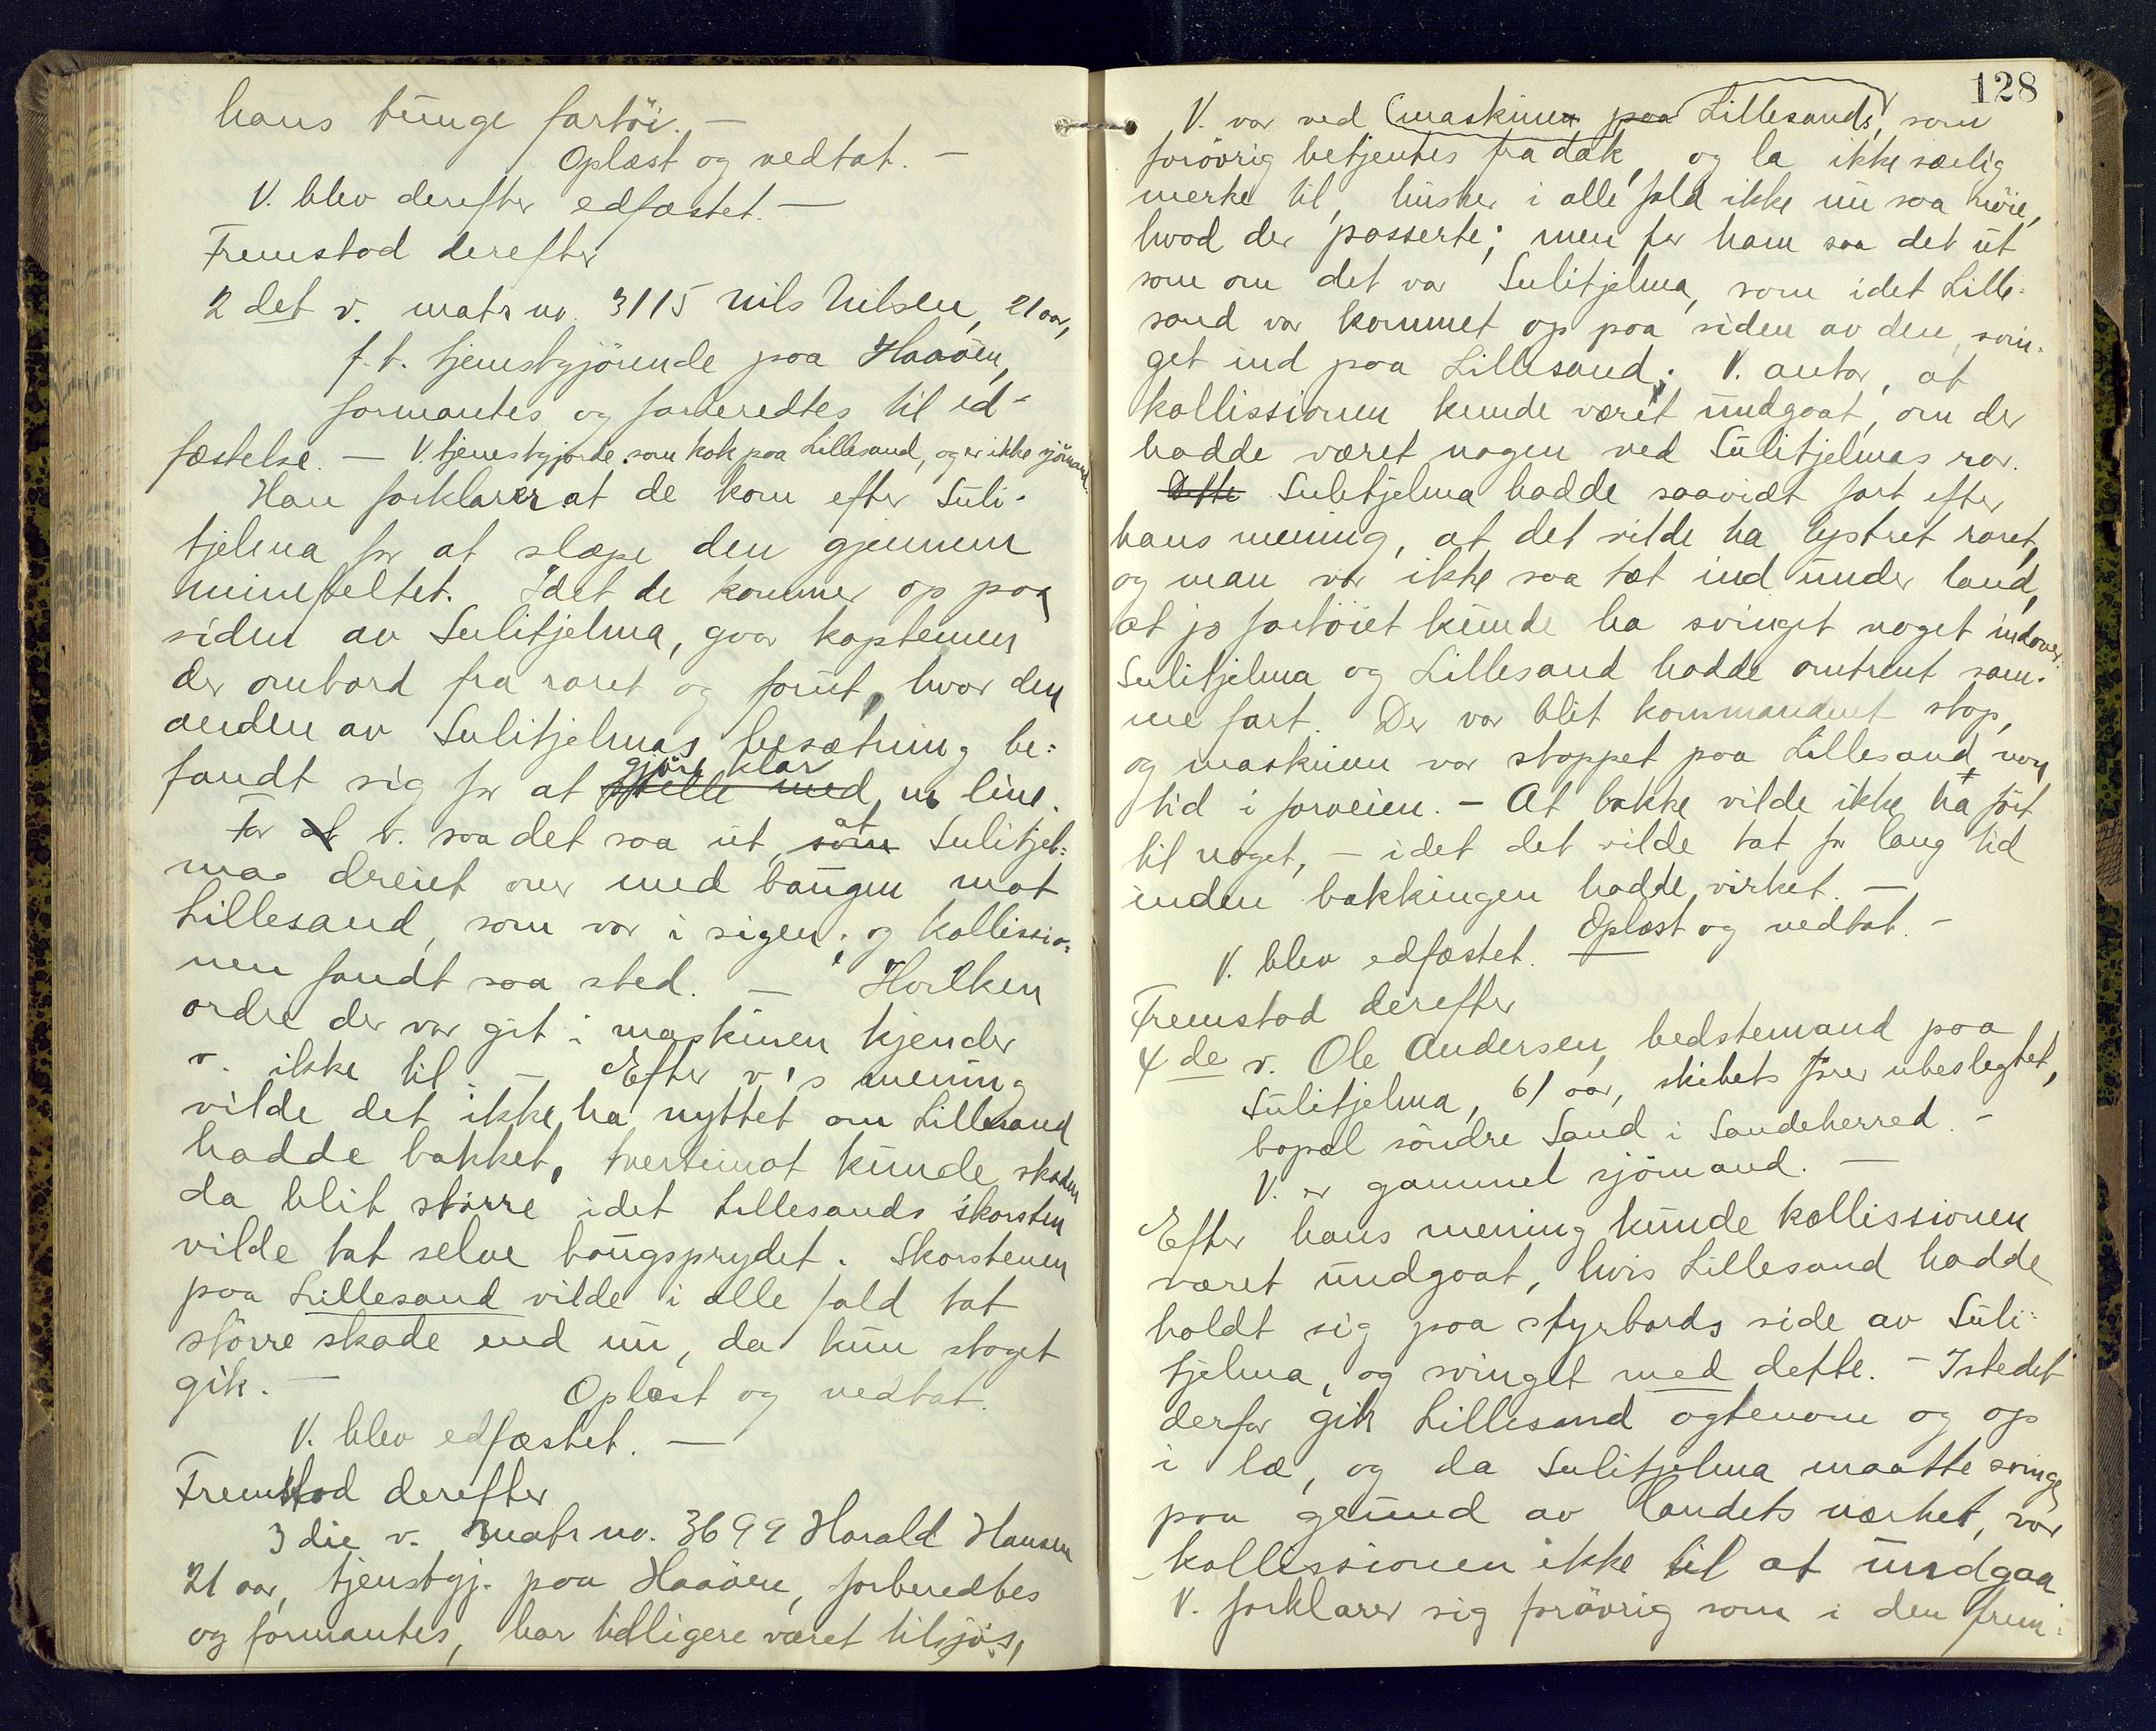 hans tunge fartöi. —
Oplæst og vedtat. —
V. blev derefter edfæstet. —
Fremstod derefter
2 det v. matr no. 3115 Nils Nilsen, 21 aar,
f. t. tjenstgjörende paa Haaöen,
formantes og forberedtes til ed-
fæstelse. — V. tjenestgjorde som kok paa Lillesand, og er ikke sjömand.
Han forklarer at de kom efter Suli-
tjelma for at slæpe den gjennem
minefeltet. Idet de kommer op paa
siden av Sulitjelma, gaar kapteinen
der ombord fra roret og forut, hvor den
anden av Sulitjelmas besætning be-
fandt sig for at gjöre klar en line.
For v. saa det saa ut, at Sulitjel-
ma dreiet over med baugen mot
Lillesand, som var i sigen; og kollissio-
nen fandt saa sted. — Hvilken
ordre der var git i maskinen kjender
v. ikke til. — Efter v's mening
vilde det ikke ha nyttet om Lillesand
hadde bakket, tvertimot kunde skaden
da blit större idet Lillesands skorsten
vilde tat selve baugsprydet. Skorstenen
paa Lillesand vilde i alle fald tat
större skade end nu, da kun staget
gik. —
Oplæst og vedtat.
V. blev edfæstet. —
Fremstod derefter
3 die v. matr no. 3699 Harald Hansen
21 aar, tjenstgj. paa Haaöen, forberedtes
og formantes, har tidligere været tilsjös,
128
V. var ved maskinen paa Lillesands, som
forövrig betjentes fra dæk, og la ikke særlig
merke til, husker i alle fald ikke nu saa nöie,
hvad der passerte; men for ham saa det ut
som om det var Sulitjelma, som idet Lille-
sand var kommet op paa siden av den, svin-
get ind paa Lillesand; V. antar, at
kollissionen kunde været undgaat, om der
hadde været nogen ved Sulitjelmas ror.
Dette Sulitjelma hadde saavidt fart efter
hans mening, at det vilde ha lystret roret,
og man var ikke saa tæt ind under land,
at jo fartöiet kunde ha svinget noget indover.
Sulitjelma og Lillesand hadde omtrent sam-
me fart. Der var blit kommandert stop,
og maskinen var stoppet paa Lillesand, noen
tid i forveien. — At bakke vilde ikke ha fört
til noget, — idet det vilde tat for lang tid
inden bakkingen hadde virket. —
Oplæst og vedtat. —
V. blev edfæstet. —
Fremstod derefter
4 de v. Ole Andersen, bedstemand paa
Sulitjelma, 61 aar, skibets förer ubeslegtet,
bopæl söndre Sand i Sandeherred. —
V. er gammel sjömand. —
Efter hans mening kunde kollissionen
været undgaat, hvis Lillesand hadde
holdt sig paa styrbords side av Suli-
tjelma, og svinget med dette. — Istedet
derfor gik Lillesand agtenom og op
i læ, og da Sulitjelma maatte svinge
paa grund av landets nærhet, var
kollissionen ikke til at undgaa
V. forklarer sig forövrig som i den frem-